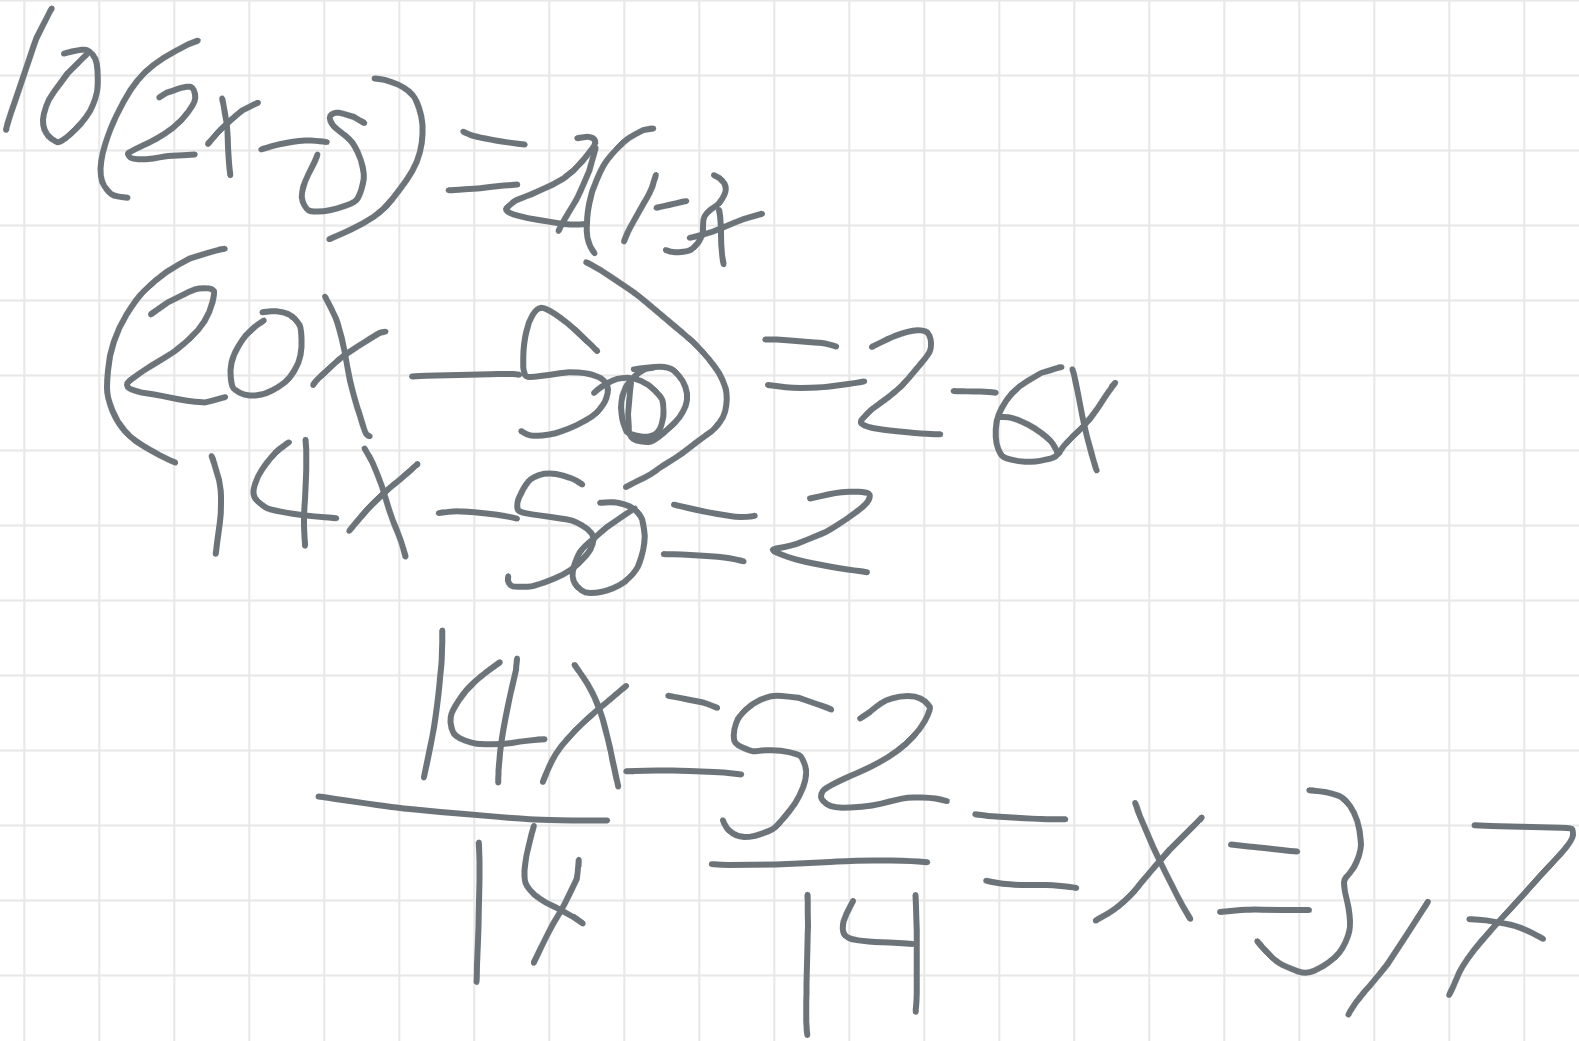 10(2x-5) = 2(1-3x
(20x - 50) = 2 - 6x
14x - 50 = 2
14x/14 = 52/14 = x = 3,7